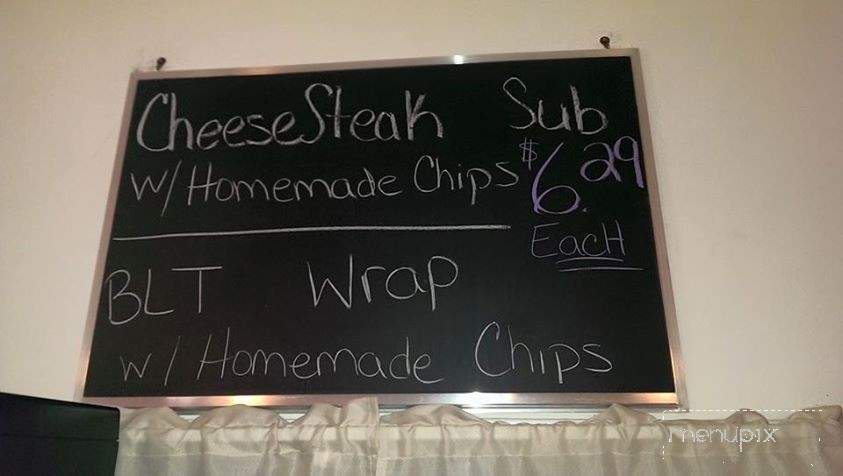 CheeseSteak Sub
W/Homemade Chips $6.29
Each
BLT Wrap
w/Homemade Chips
menupix